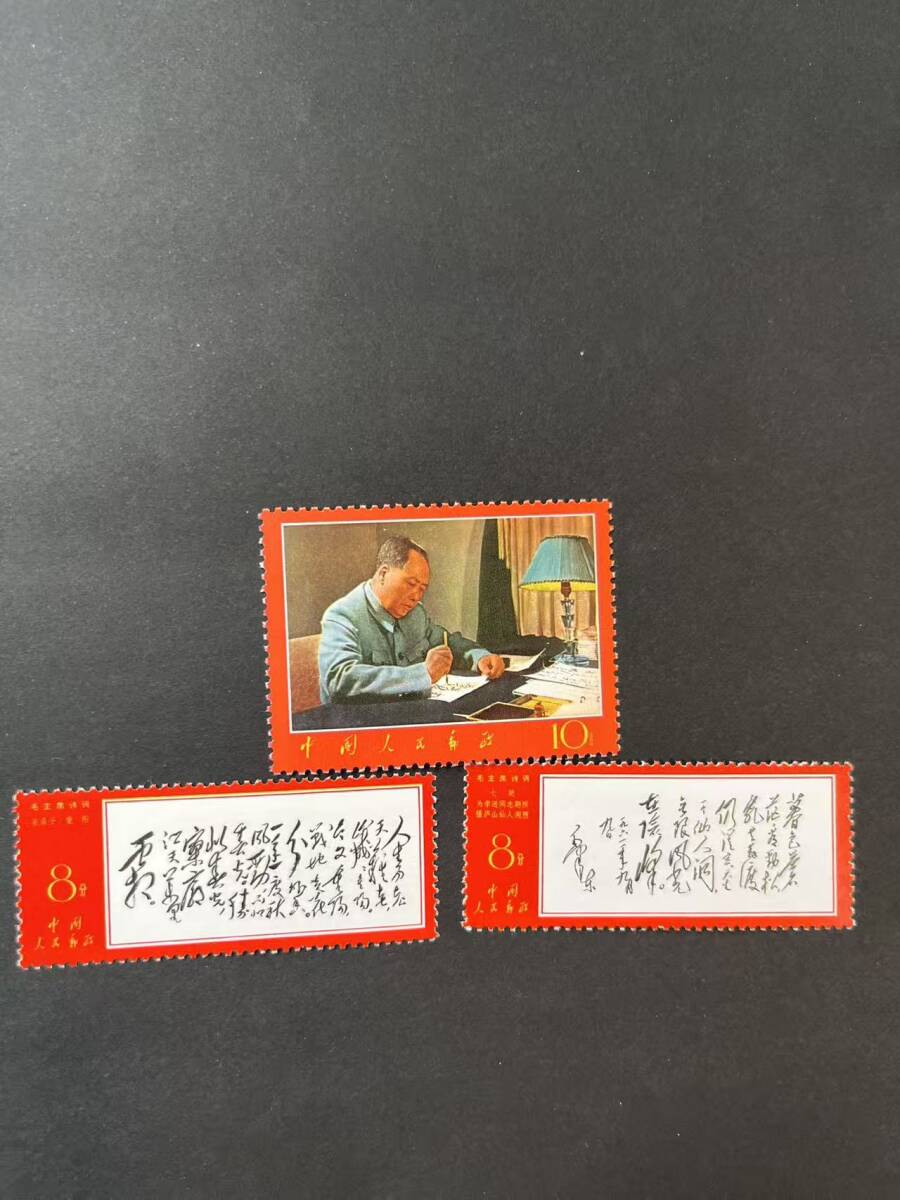 中国人民邮政
10分
毛主席诗词
采桑子·重阳
8分
中国
人民邮政
人生易老
天难老,
岁岁重阳。
今又重阳,
战地黄花
分外香。
一年一度秋
风劲,不似
春光。胜
似春光,
寥廓
江天万里
霜。
毛主席诗词
七绝
为李进同志题所
摄庐山仙人洞照
8分
中国
人民邮政
暮色苍
茫看劲松
乱云飞渡
仍从容天生
一个仙人洞
无限风光
在险峰。
一九六一年九月
九日
毛泽东